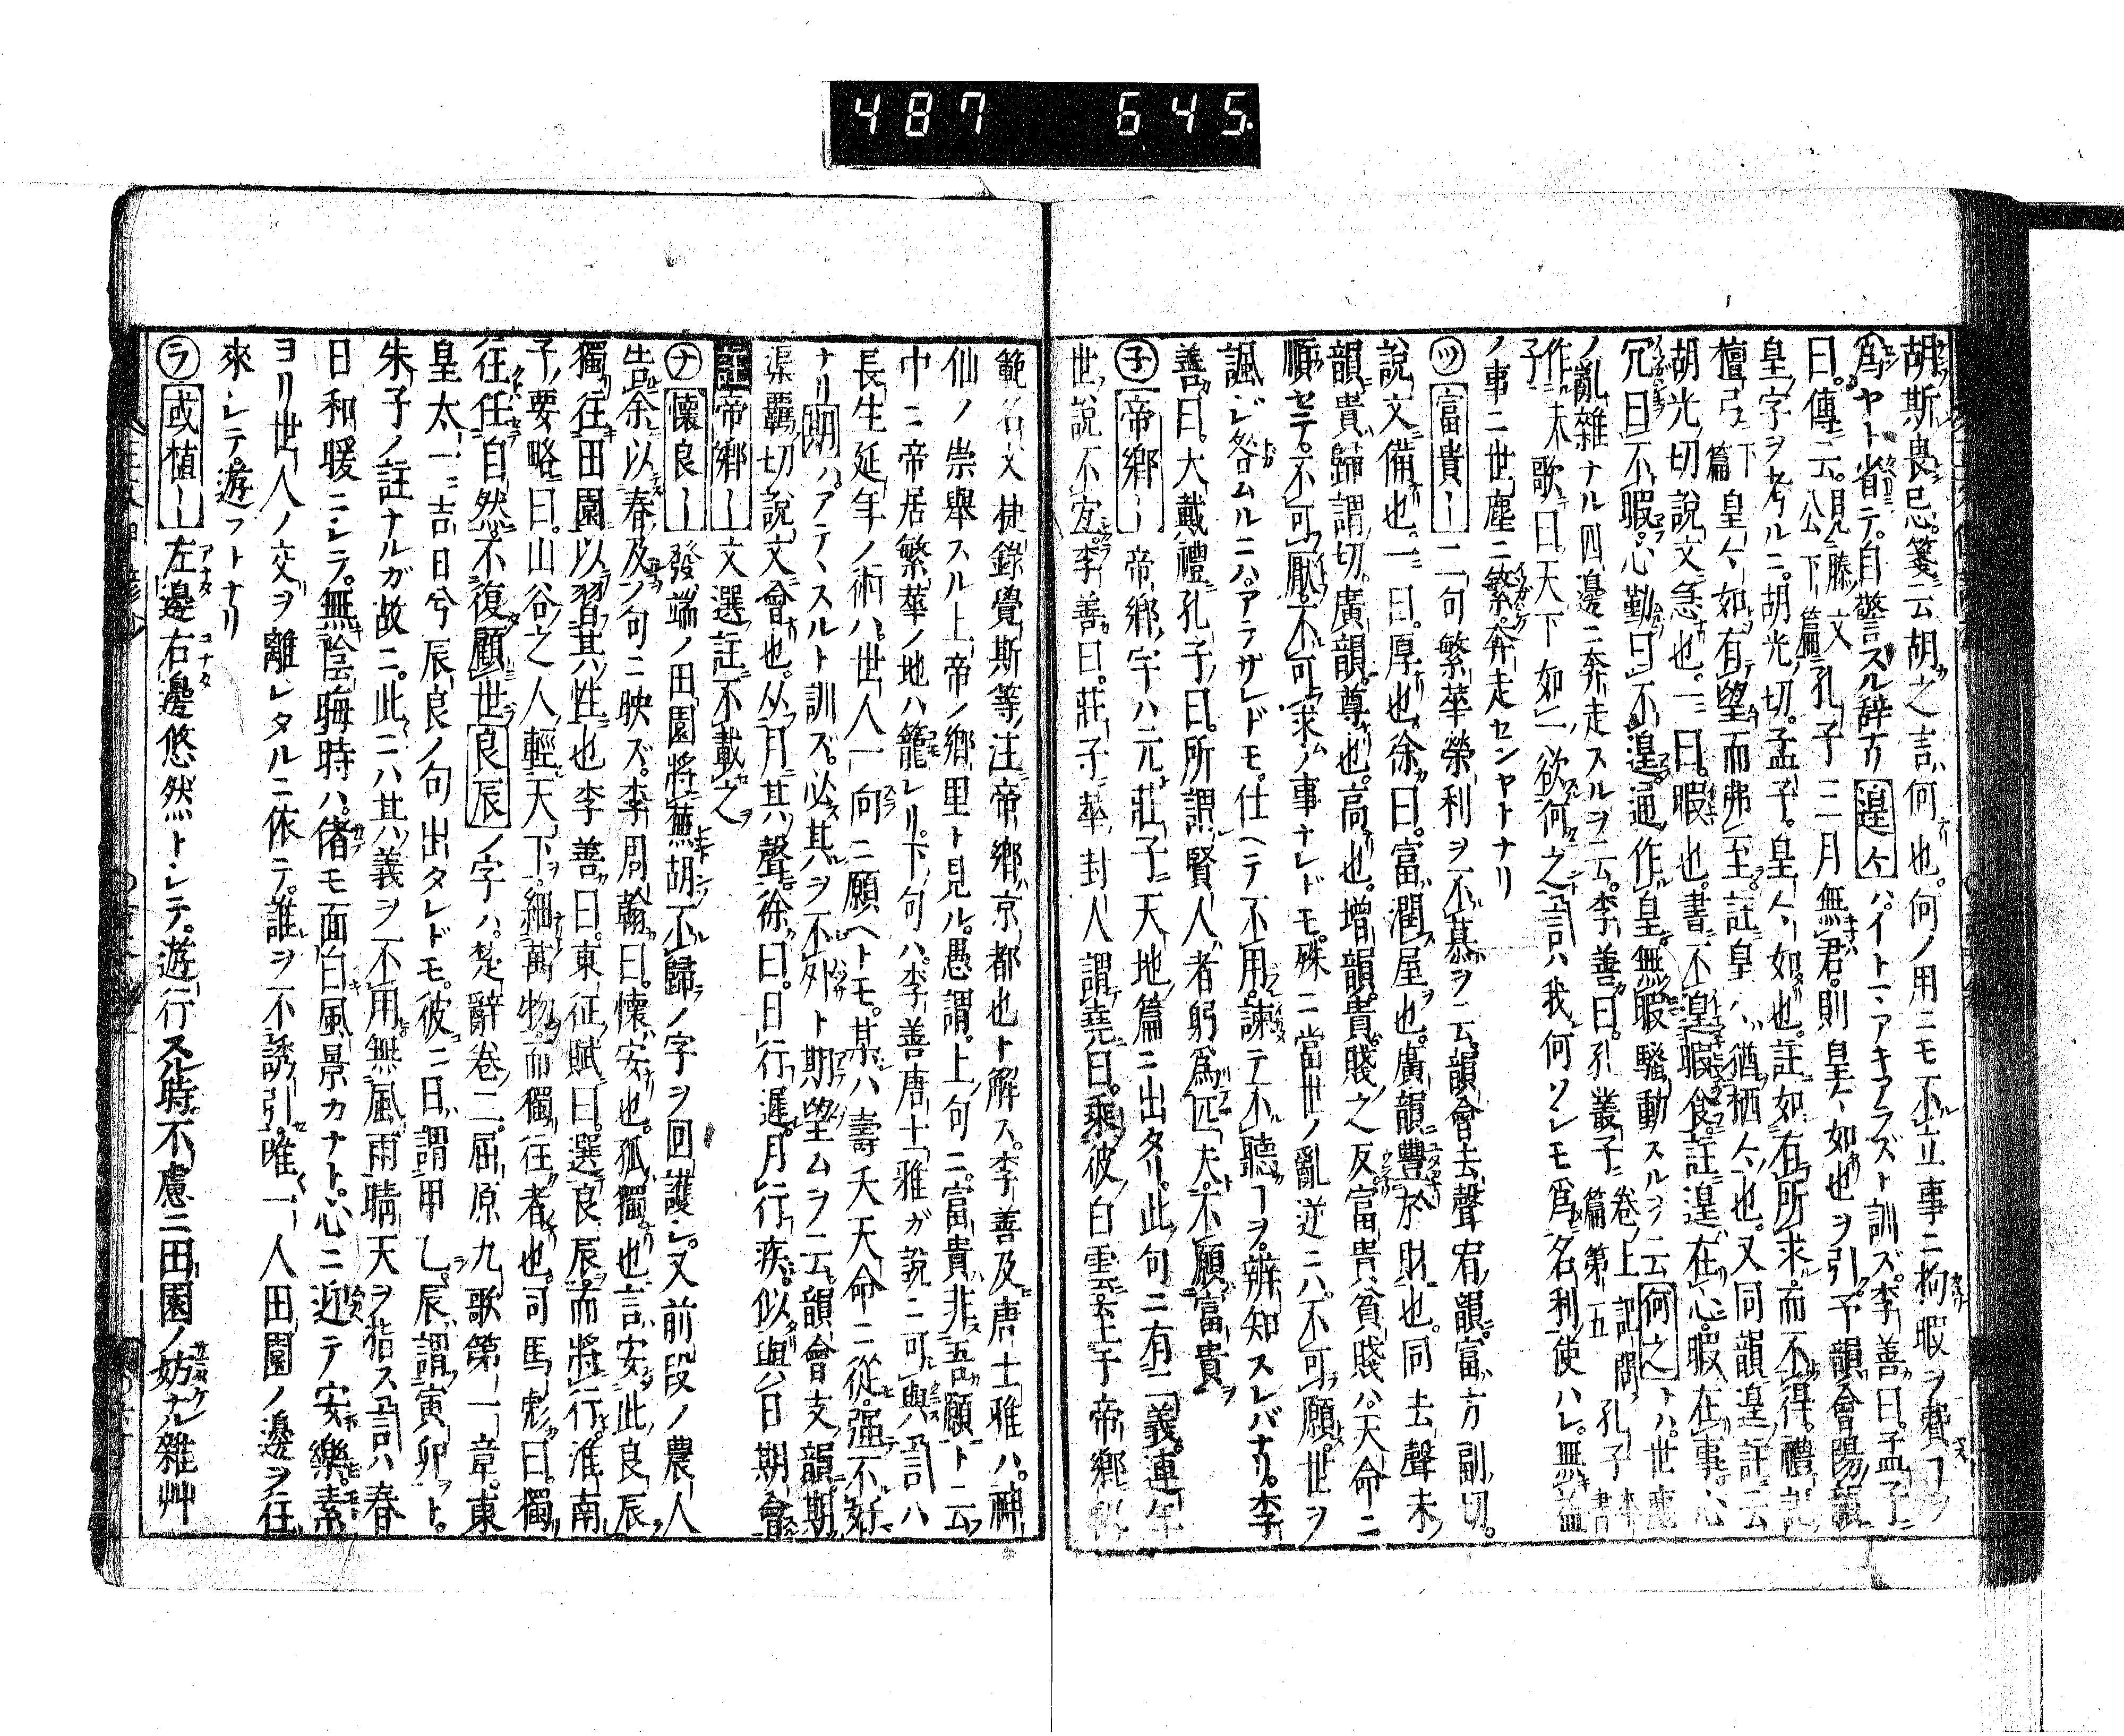 487 645.
胡斯畏忌。箋云胡之言何也。何ノ用ニモ不立事ニ拘暇ヲ費
爲ヤト省テ。自警スル辞カ遑々ハ。イトマアキアラズト訓ズ。李善曰。孟子
曰。傳云。見滕文公下篇孔子三月無君。則皇々如也ヲ引。予韻會陽韻
皇字ヲ考ルニ。胡光切。孟子。皇々如也。註如有所求。而不得。禮記
檀弓下篇皇々如有望而弗至。註皇々猶栖々也。又同韻遑註云
胡光切說文急也。一曰。暇也。書不遑暇食。註遑在心。暇在事。心
冗曰不暇。心勤曰不遑。通作皇。無暇騷動スルヲ云何之トハ。世塵
ノ亂雜ナル四邊ニ奔走スルヲ云。李善曰。孔叢子卷上記問篇第五孔子
作歌曰天下如一欲何之言ハ我何ソレモ爲名利使ハレ。無益
ノ事ニ世塵ニ繁奔走センヤトナリ
ツ富貴ー二句繁華榮利ヲ不慕ヲ云。韻會去聲宥韻。富方副切。
說文備也。一曰。厚也。徐曰。富潤屋也。廣韻豐於財也。同去聲未
韻貴。歸謂切。廣韻。尊也。高也。增韻。貴賤之反。富貴貧賤ハ。天命ニ
順セテ。不可厭。不可求ノ事ナレドモ。殊ニ當世ノ亂逆ニハ。不可願。世ヲ
諷シ咎ムルニハ。アラザレドモ。仕ヘテ不用。諫テ不聽ヿヲ。辨知スレバナリ。李
善曰。大戴禮孔子曰。所謂賢人者躬爲匹夫。不願富貴
子帝鄉ー帝鄉字ハ元莊子天地篇ニ出タリ。此句ニ有二義。連年
世說不定。李善曰。莊子華封人謂堯曰。乘彼白雲。至于帝鄉
範名文捷錄覺斯等注帝鄉京都也ト解ス。李善及唐士雅ハ。神
仙ノ崇舉スル上帝ノ鄉里ト見ル。愚謂。上句ニ富貴非吾願ト云
巾ニ帝居繁華ノ地ハ籠レリ。下句ハ。李善唐士雅ガ說ニ可與。言ハ
長生延年ノ術ハ。世人一向ニ願ヘトモ。某ハ壽夭天命ニ從。强不好
ナリ期ハ。アテスルト訓ズ。必其ハヲ不外ト期望ムヲ云。韻會支韻。期
渠羈切說文會也。从月其聲。徐曰。日行遲。月行疾。似與日期會
註帝鄉ー文選註不載之
ナ懷良ー發端ノ田園將蕪胡不歸ノ字ヲ回護シ。又前段ノ農人
告余以春及ノ句ニ映ズ。李周翰曰。懷安也。孤獨也言安此良辰
獨往田園以習其性也李善曰。東征賦曰。選良辰而將行。淮南
子要略曰。山谷之人輕天下。細萬物。而獨往者也。司馬彪曰。獨
往任自然。不復顧世良辰ノ字ハ。楚辭卷二。屈原九歌第一章。東
皇太一。吉日兮辰良ノ句出タレドモ。彼ニ日謂甲乙。辰謂寅卯ト。
朱子ノ註ナルガ故ニ。此ニハ其義ヲ不用。無風雨晴天ヲ指ス言ハ春
日和暖ニシテ。無陰晦時ハ。偖モ面白風景カナト。心ニ迎テ安樂。素
ヨリ世人ノ交ヲ離レタルニ依テ。誰ヲ不誘引。唯一人田園ノ邊ヲ往
來シテ。遊フトナリ
ラ或植ー左邊右邊悠然トシテ。遊行スル時。不慮ニ田園ノ妨ナル雜艸